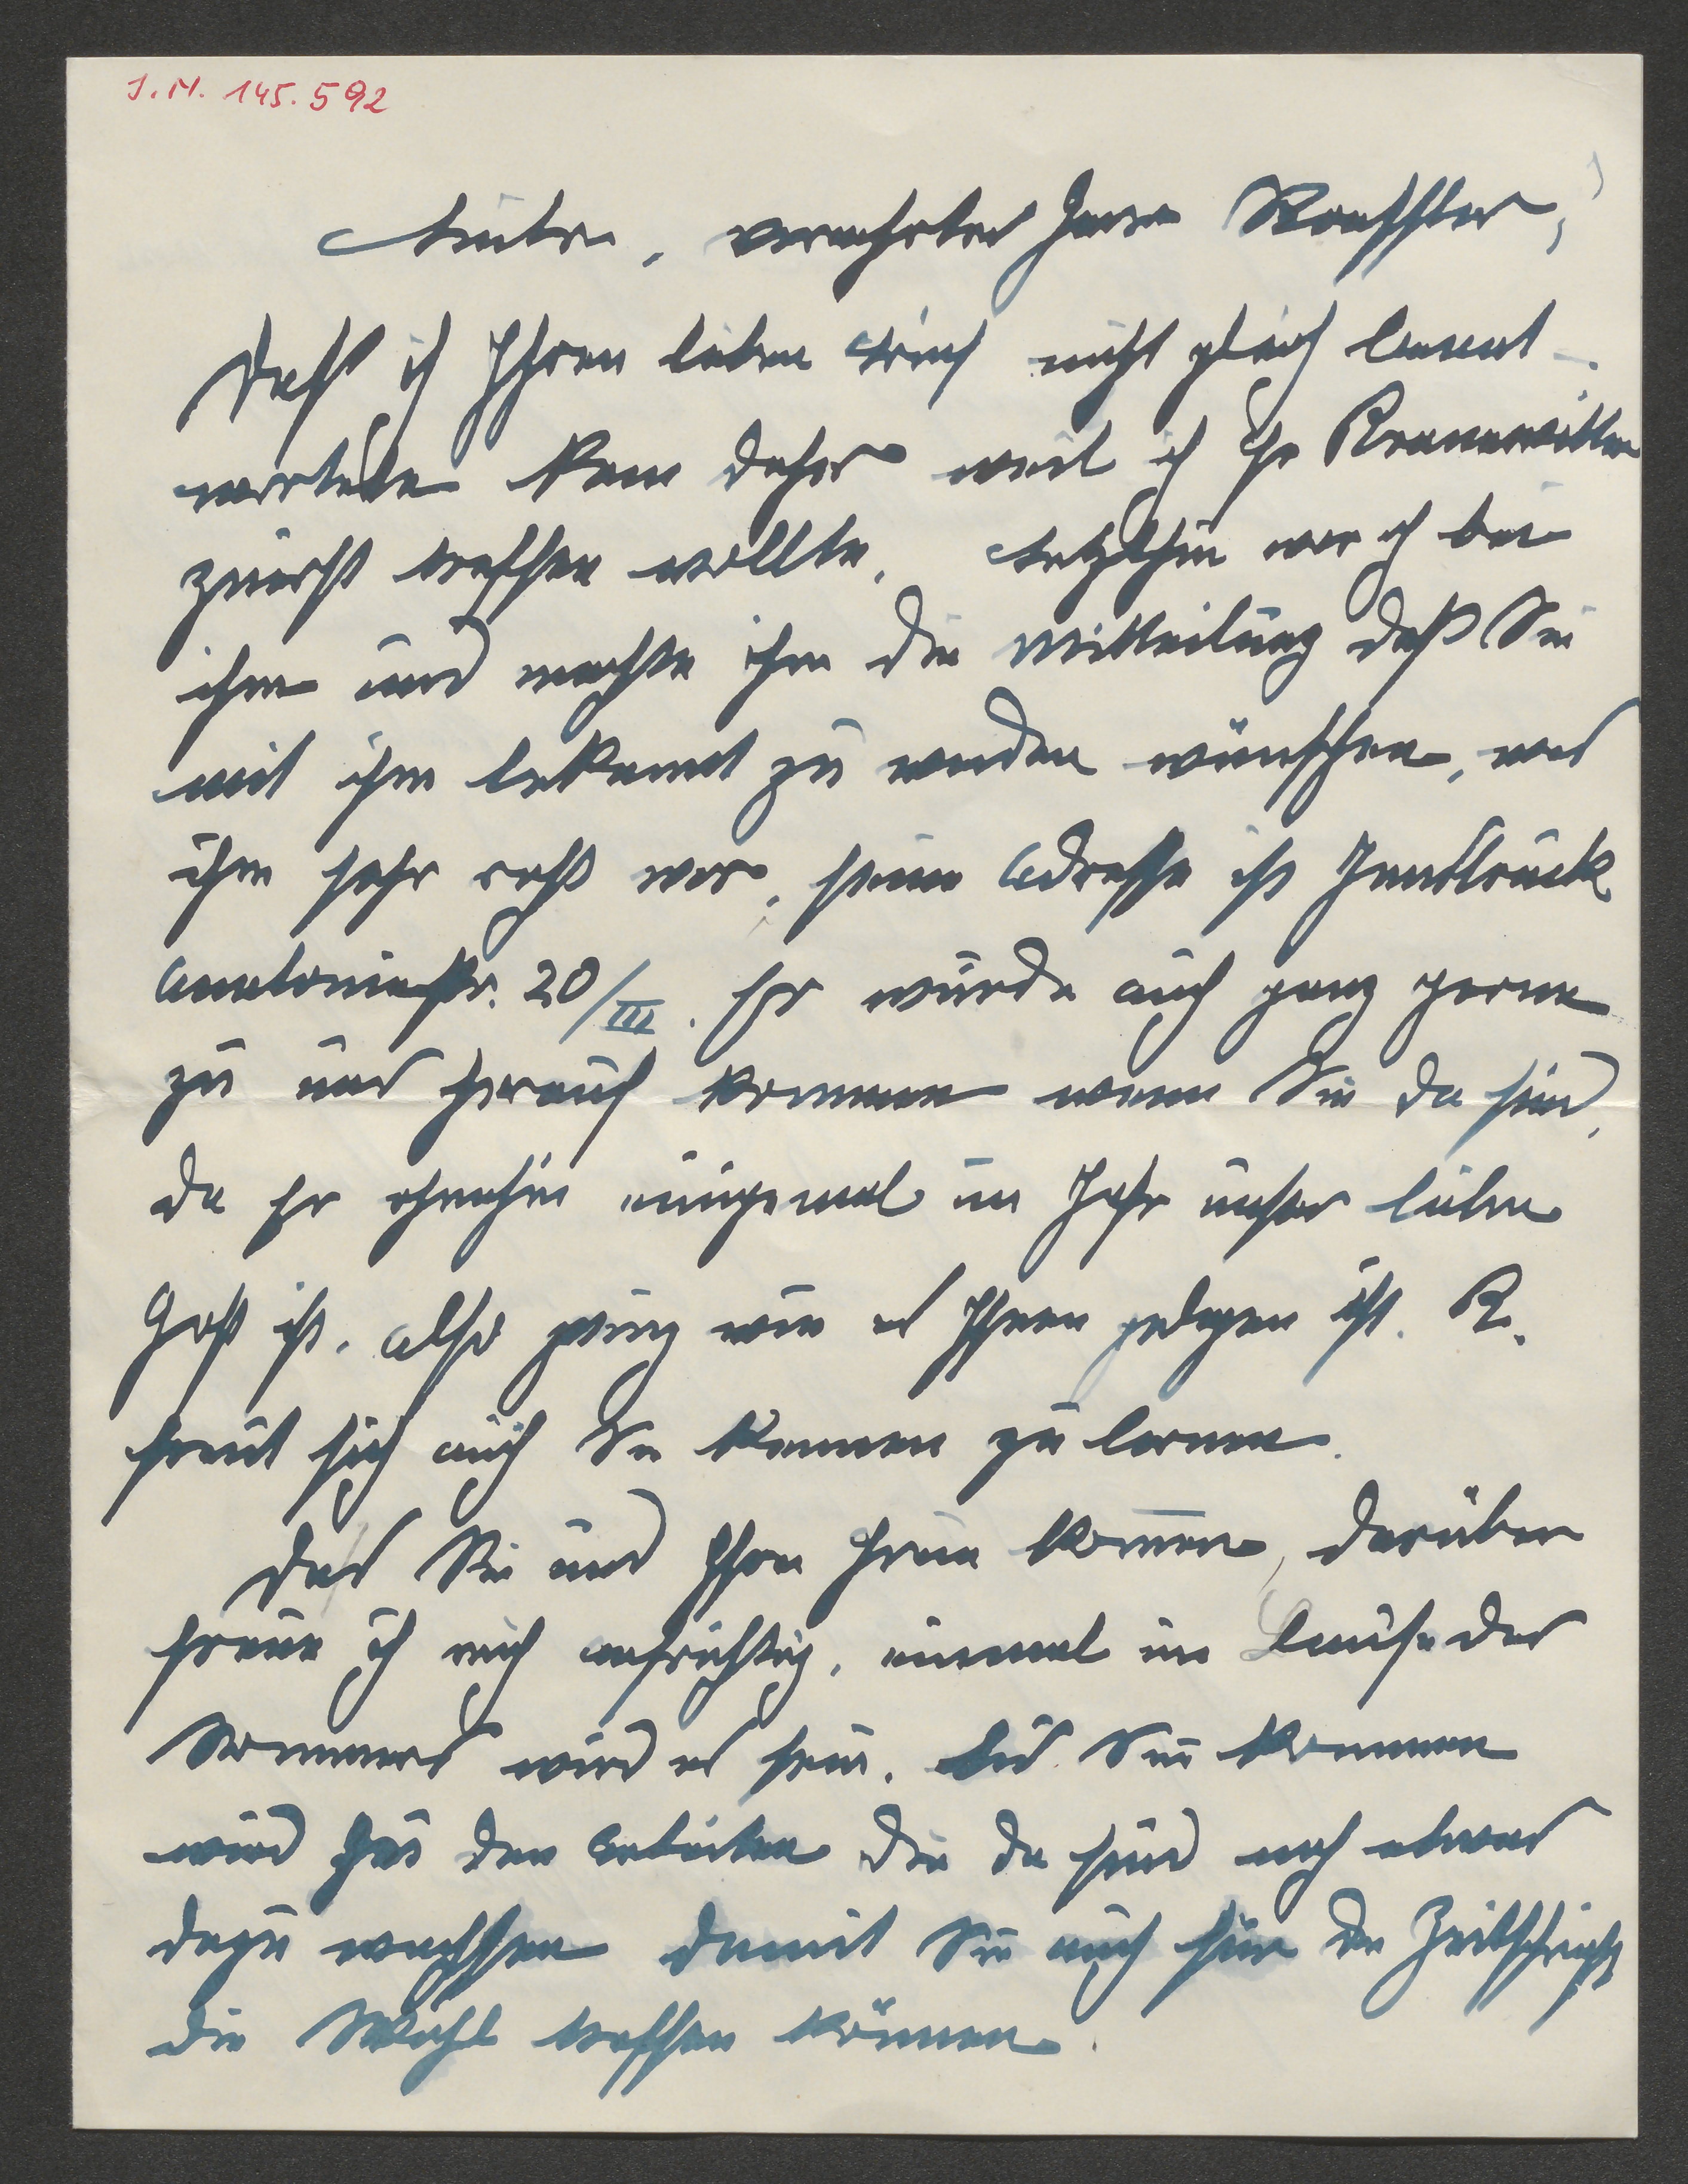 J.N. 145.592
Lieber, verehrter Herr Roessler,
Daß ich Ihren lieben Brief nicht gleich beant-
wortete kam daher weil ich Hr Kranewitter
zuerst treffen wollte. Letzthin war ich bei
ihm und machte ihm die Mitteilung daß Sie
mit ihm bekannt zu werden wünschen, was
ihm sehr recht war, seine Adresse ist Innsbruck
Anatomiestr. 20/III. Er würde auch ganz gerne
zu uns herauf kommen wenn Sie da sind,
da Er ohnehin einigemal im Jahr unser lieber
Gast ist. also ganz wie es Ihnen gelegen ist. K.
freut sich auch Sie kennen zu lernen.
Das Sie und Ihre Frau kommen, darüber
freue ich mich aufrichtig, einmal im Laufe des
Sommers wird es sein. Bis Sie kommen
wird zu den Arbeiten die da sind noch etwas
dazu wachsen damit Sie auch für die Zeitschrift
die Wahl treffen können.